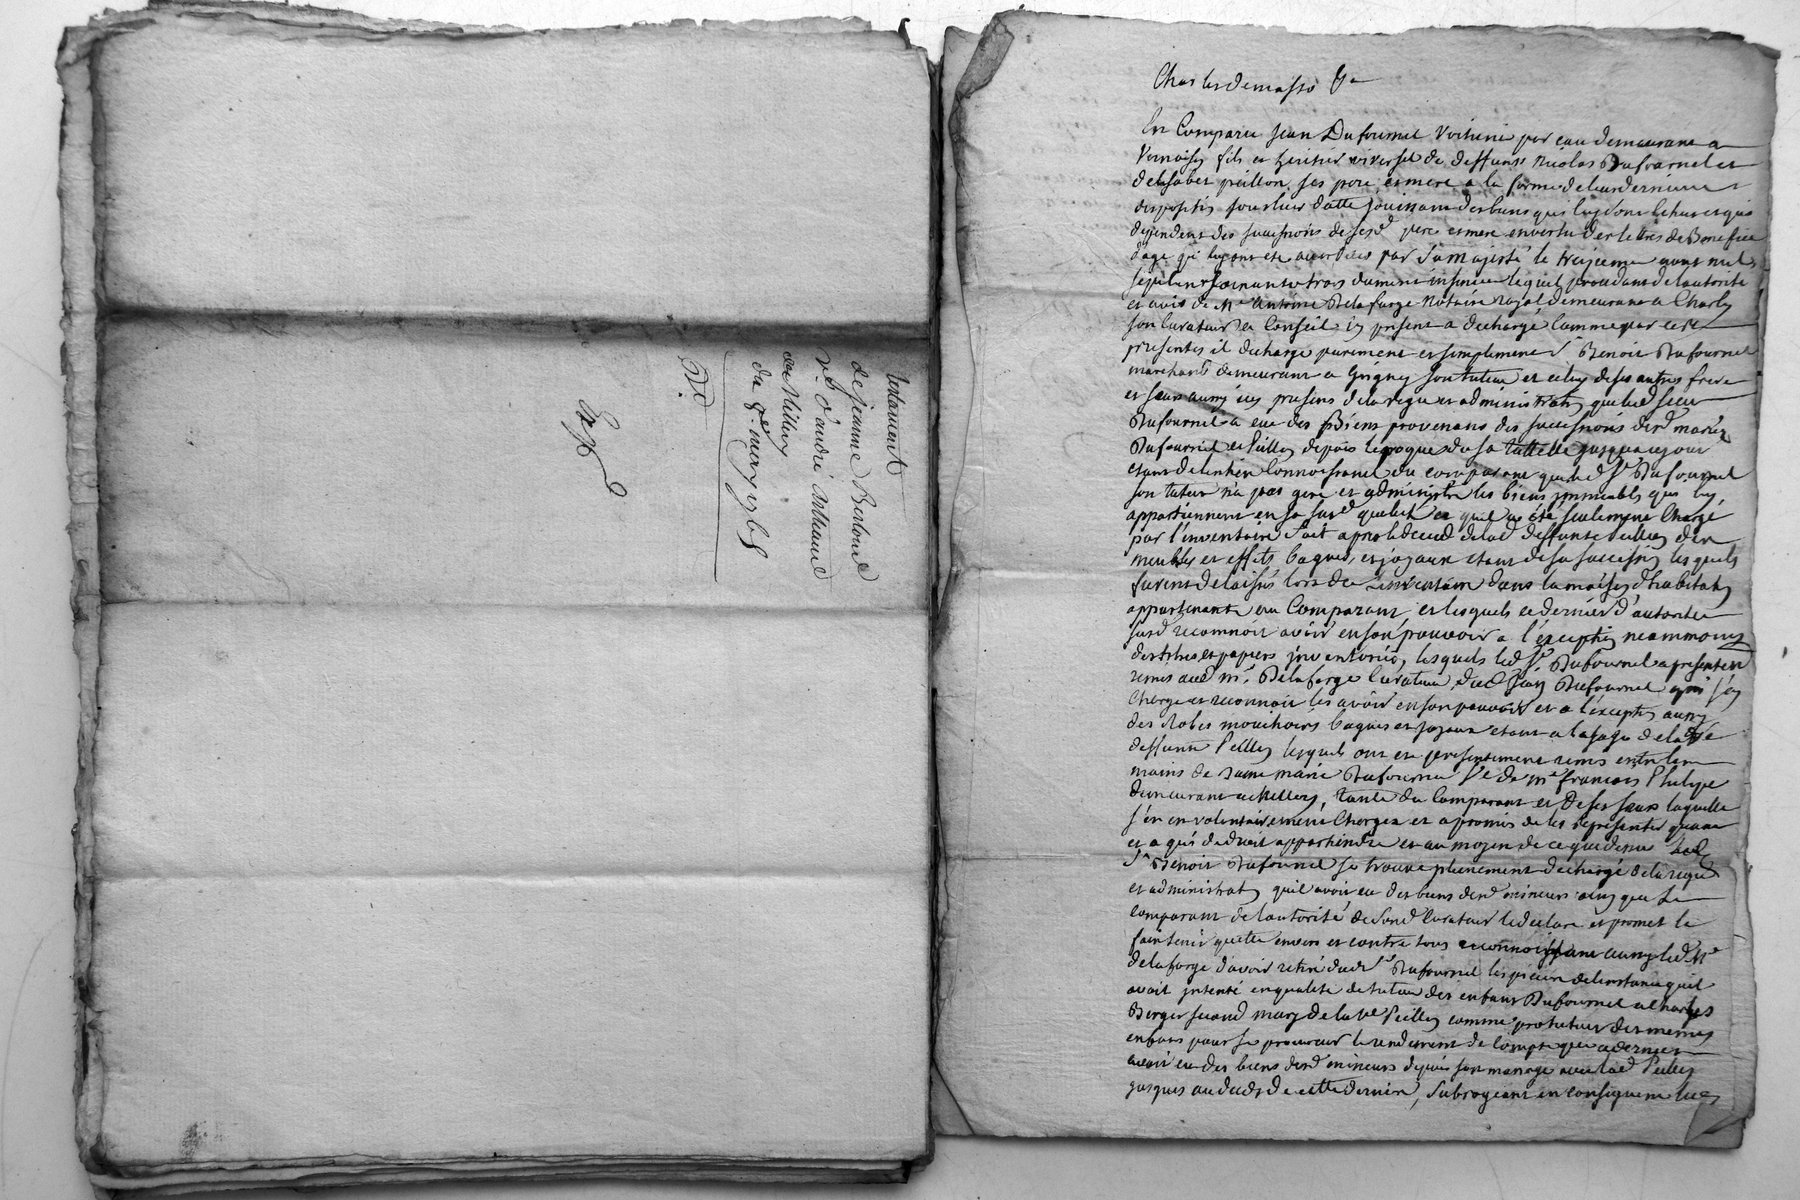 testament
de jeanne Berloud
ve d'andré
de Millery
du 8e may 1765
Charles demasso &a
En Comparu jean Dufournel Voiturier par eau demeurant a
Vernaison fils et heritier universel de deffunts Nicolas Dufournel et
delisabet peillon ses pere et mere a la forme de leur dernieres
dispositions sous leur datte jouissant des biens qui luy sont echus et qui
dependent des successions de sesd pere et mere en vertu des lettres de Benefice
dage qui luy ont ete accordées par Sa majesté le treizieme mil
sept cent soixante trois lequel procedant de l'autorité
et avis de Me Antoine Delafarge Notaire royal demeurant a Charly
son Curateur et Conseil icy present a dechargé Comme par ces
presentes il decharge purement et simplement Sr Benoit Dufournel
marchand demeurant a Grigny son tuteur et celuy de ses autres frere
et seurs aussy icy present de la regie et administration que led sieur
Dufournel a eue des Biens provenants des successions desd mariés
Dufournel et Peillon depuis lepoque de sa tutelle jusqua ce jour
etant de lentiere Connoissance du comparant que led Sr Dufournel
son tuteur na pas geré et administré les biens immeubles qui luy
appartiennent en sa susd qualité et quil a été seulement Chargé
par l'inventaire fait apres le deced de lad deffunte Peillon des
meubles et effets bagues et joyaux etant de sa succession lesquels
furent delaissés lors de Linventaire dans la maison d'habitation
appartenante au Comparant, et lesquels ce dernier d'autorité
susd reconnoit avoir en son pouvoir a l'exception neammoins
des titres et papiers inventoriés, lesquels led Sr Dufournel a presentement
remis aud Me Delafarge Curateur dud Jean Dufournel qui s'en
Charge et reconnoit les avoir en son pouvoir et a l'exception aussy
des Robes mouchoirs bagues et joyaux etant a lusage de lad
deffunte Peillon lesquels ont ete presentement remis entre les
mains de dame marie Dufournel fe de Me francois Philipe
demeurant a Millery, tante du Comparant et de ses seurs laquelle
s'en en volontairement Chargée et a promis de les representer quand
et a qui de droit appartiendra et au moyen de ce que dessus led
Sr Benoit Dufournel se trouve pleinement dechargé de la regie
et administration quil avoit eu des biens desd mineurs ainsy que Le
Comparant de l'autorité de sond Curateur le declare et promet le
faire tenir quitte envers et contre tous reconnoissant aussy led Me
delafarge d'avoir retiré dud Sr Dufournel les pieces de linstance quil
avoit intenté en qualité de tuteur des enfans Dufournel a Charles
Berger second mary de la ve Peillon comme protuteur des memes
enfans pour se procurer le rendement de Compte que ce dernier
avoit eu des biens desd mineurs depuis son mariage avec lad Peillon
jusques au deceds de cette derniere, Subrogeant en consequence